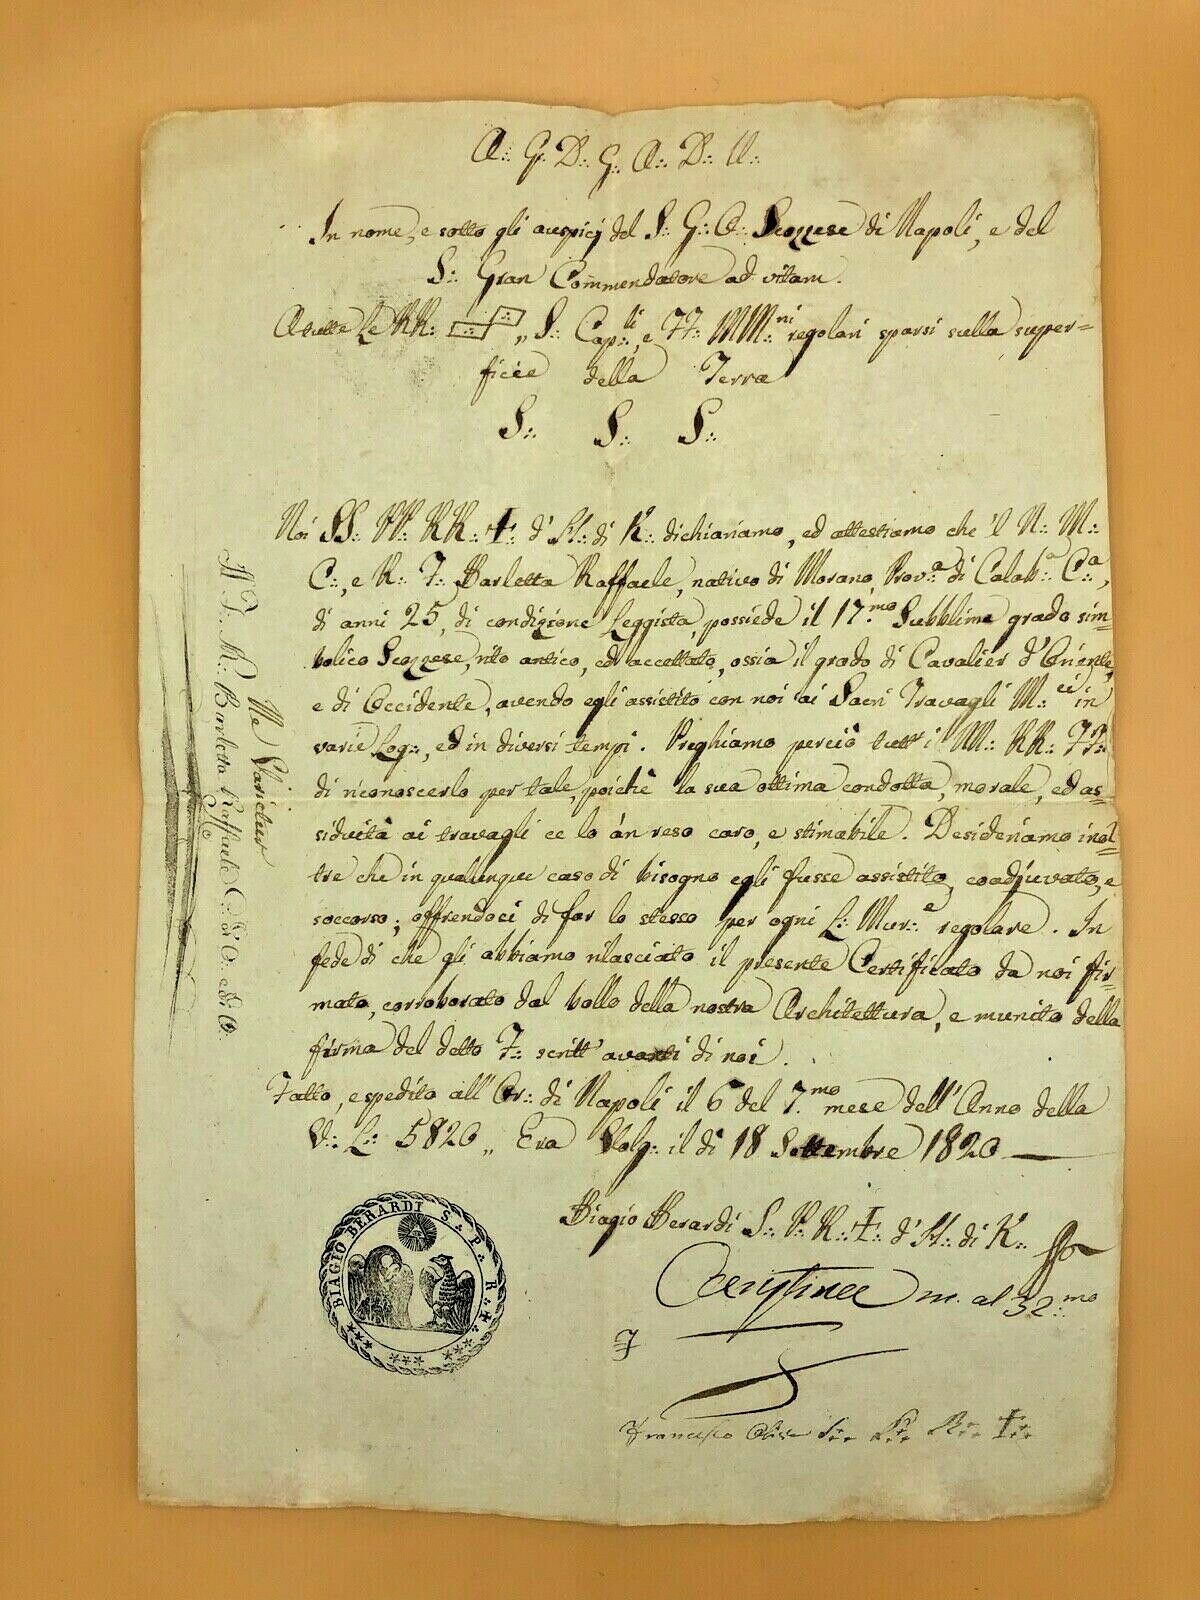 A∴ G∴ D∴ G∴ A∴ D∴ U∴
In nome, e sotto gli auspicj del S∴ G∴ O∴ Scozzese di Napoli, e del
S∴ Gran Commendatore ad vitam.
A tutte Le RR∴ „ S∴ Cap∴li, e FF∴ MM∴ni regolari sparsi sulla super=
ficie della Terra
S∴ S∴ S∴
Noi SS∴ PP∴ RR∴ ✠∴ d'H∴ di K∴ dichiariamo, ed attestiamo che 'l N∴ M∴
C∴, e R∴ F∴ Barletta Raffaele, nativo di Morano, Prov∴a di Calab∴a C∴a,
di anni 25, di condizione Leggista, possiede il 17.mo Subblime grado sim=
bolico Scozzese, rito antico, ed accettato, ossia il grado di Cavalier d'Oriente,
e di Occidente, avendo egli assistito con noi ai Sacri Travagli M∴ci in
varie Log∴, ed in diversi tempi. Preghiamo perciò tutt'i MM∴ RR∴ FF∴
di riconoscerlo per tale, poichè la sua ottima condotta, morale, ed as=
siduità ai travagli ce lo àn reso caro, e stimabile. Desideriamo inol=
tre che in qualunque caso di bisogno egli fusse assistito, coadjuvato, e
soccorso; offrendoci di far lo stesso per ogni L∴ Mur∴e regolare. In
fede di che gli abbiamo rilasciato il presente Certificato da noi fir=
mato, corroborato dal bollo della nostra Architettura, e munito della
firma del detto F∴ scritt' avanti di noi.
Fatto, e spedito all'Or∴ di Napoli il 6 del 7.mo mese dell'Anno della
V∴ L∴ 5820 „ Era Volg∴ il dì 18 Settembre 1820
Biagio Berardi S∴ P∴ R∴ ✠∴ d'H∴ di K∴
m. al 32∴mo
F
Francesco S∴ P∴ R∴ ✠∴
BIAGIO BERARDI S∴ P∴ R∴ ✠∴
Ne Varietur
Il F∴ R∴ Barletta Raffaele C∴ d'O. ed'O.